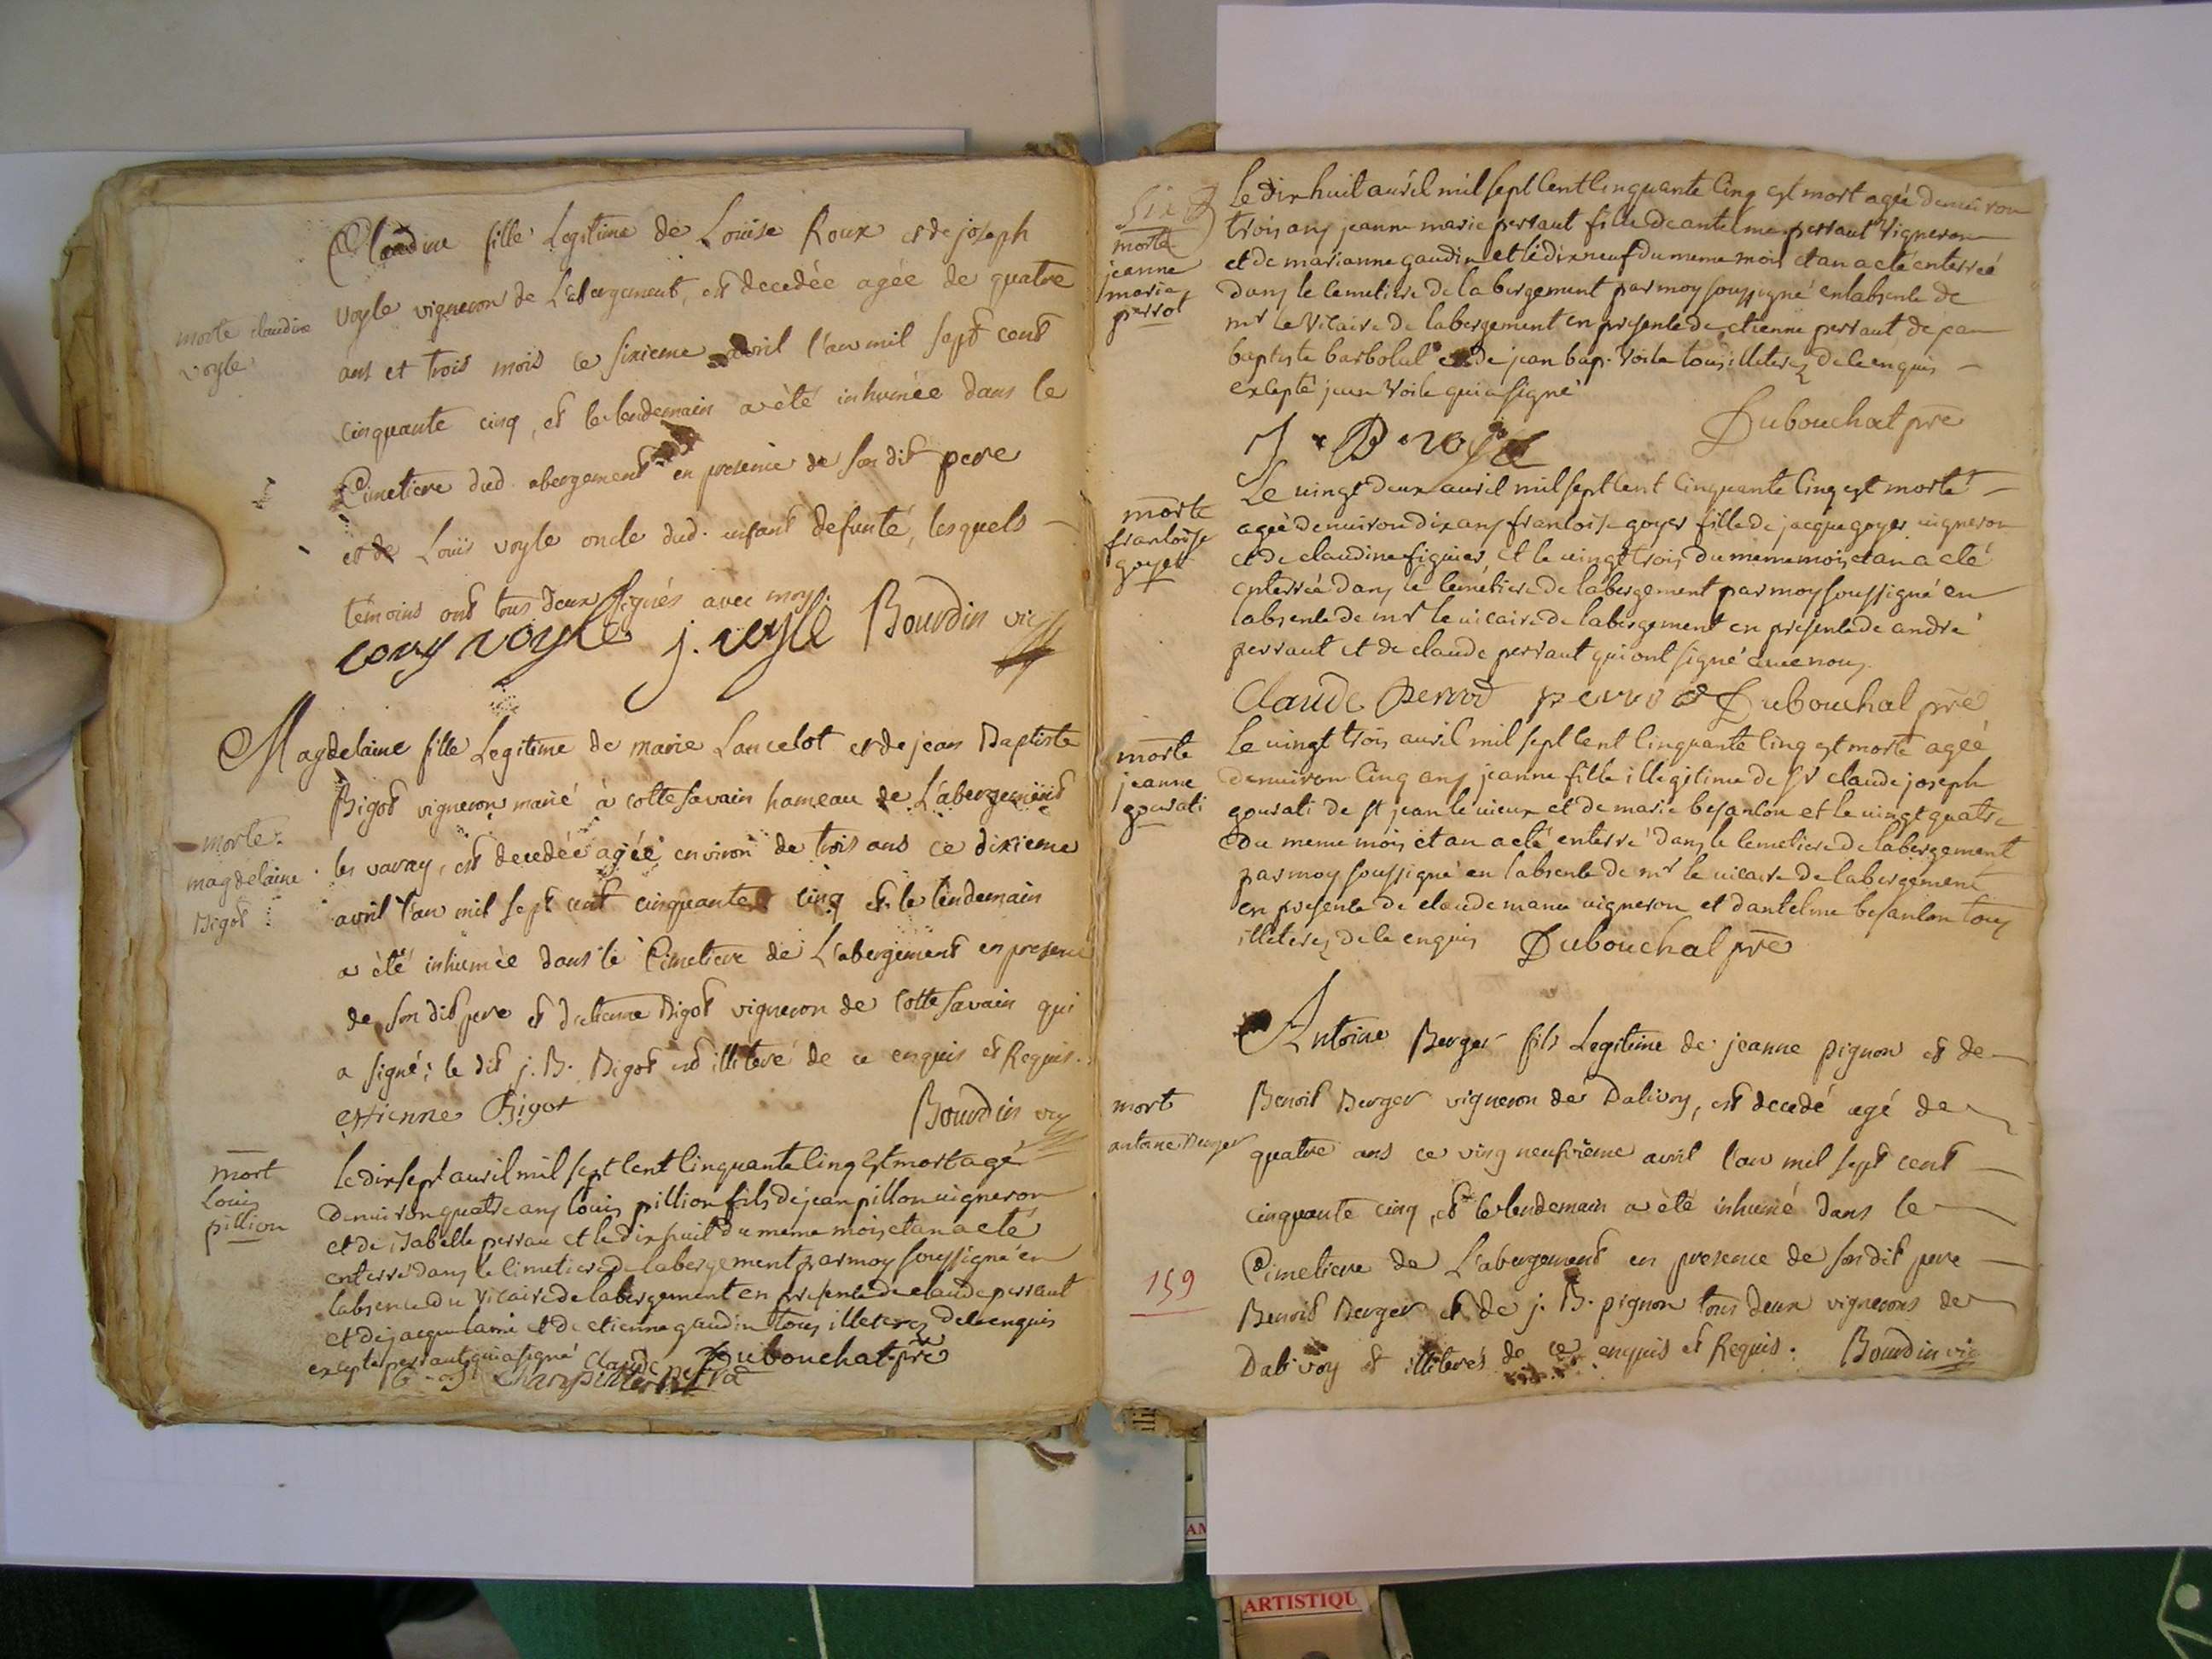 morte claudine
voyle
Claudine fille Legitime de Louïse Roux et de joseph
voyle vigneron de L'abergement, est decedée agée de quatre
ans et trois mois ce sixieme avril l'an mil sept cent
cinquante cinq, et le lendemain a èté inhumée dans le
Cimetiere dud. abergement en presence de son dit pere
et de Louis voyle oncle dud. enfant defunte, lesquels
temoins ont tous deux signés avec moy.
louy voyle j. voyle Bourdin vic
morte
magdelaine
Bigot
Magdelaine fille Legitime de marie Lancelot et de jean Baptiste
Bigot vigneron marié à cotte savain hameau de L'abergement
les varay, est decedée agée environ de trois ans ce dixieme
avril l'an mil sept cent cinquante cinq et le lendemain
a èté inhumée dans le Cimetiere de L'abergement en presence
de son dit pere et d'etienne Bigot vigneron de Cotte savain qui
a signé; le dit j. B. Bigot est illiteré de ce enquis et Requis.
ettienne Bigot Bourdin vic
mort
louis
pillion
le dix sept auril mil sept cent cinquante cinq est mort agé
denuiron quatre ans louis pillion fils de jean pillon uigneron
et de isabelle perrau et le dix huit du meme mois et an a eté
enterré dans le cimetiere de labergement par moy soussigné en
labsence du vicaire de labergement en presence de claude perraut
et de jacque lami et de etienne gaudin tous illeterez de ce enquis
excepté perraut qui a signé Claude Dubouchat pre
Six
morte
jeanne
marie
perrot
le dix huit auril mil sept cent cinquante cinq est mort agée denuiron
trois ans jeanne marie perraut fille de antelme perraut vigneron
et de marianne gaudin et le dix neuf du meme mois et an a eté enterreé
dans le cemetiere de labergement par moy soussigné en labsence de
mr le vicaire de labergement en presence de etienne perraut de jean
baptiste barbolat et de jean bap. voile tous illeterez de ce enquis
excepté jean voile qui a signé
Dubouchat pre
J B voyle
morte
francoise
goyet
Le uingt deux auril mil sept cent cinquante cinq est morte
ageé denuiron dix ans francoise goyer fille de jacque goyer uigneron
et de claudine figuier, et le uingt trois du meme mois et an a eté
enterreé dans le cemétiere de labergement par moy soussigné en
labsence de mr le uicaire de labergement en presence de andré
perraut et de claude perraut qui ont signé auec nous.
Claude perrod perrod Dubouchat pre
morte
jeanne
gourati
le uingt trois auril mil sept cent cinquante cinq est morte ageé
denuiron cinq ans jeanne fille illegitime de sr claude joseph
gourati de st jean le uieux et de marie besancon et le uingt quatre
du meme mois et an a eté enterré dans le cemetiere de labergement
par moy soussigné en labsence de mr le uicaire de labergement
en presence de claude manu uigneron et dantelme besancon tous
illeterez de ce enquis Dubouchat pre
mort
antoine Berger
Antoine Berger fils Legitime de jeanne pignon et de
Benoit Berger vigneron de Dalivoy, est decedé agé de
quatre ans ce vingt neufvieme avril l'an mil sept cent
cinquante cinq, et le lendemain a èté inhumé dans le
Cimetiere de L'abergement en presence de son dit pere
Benoit Berger et de j. B. pignon tous deux vignerons de
Dalivoy et illiterés de ce enquis et Requis. Bourdin vic
159
ARTISTIQU